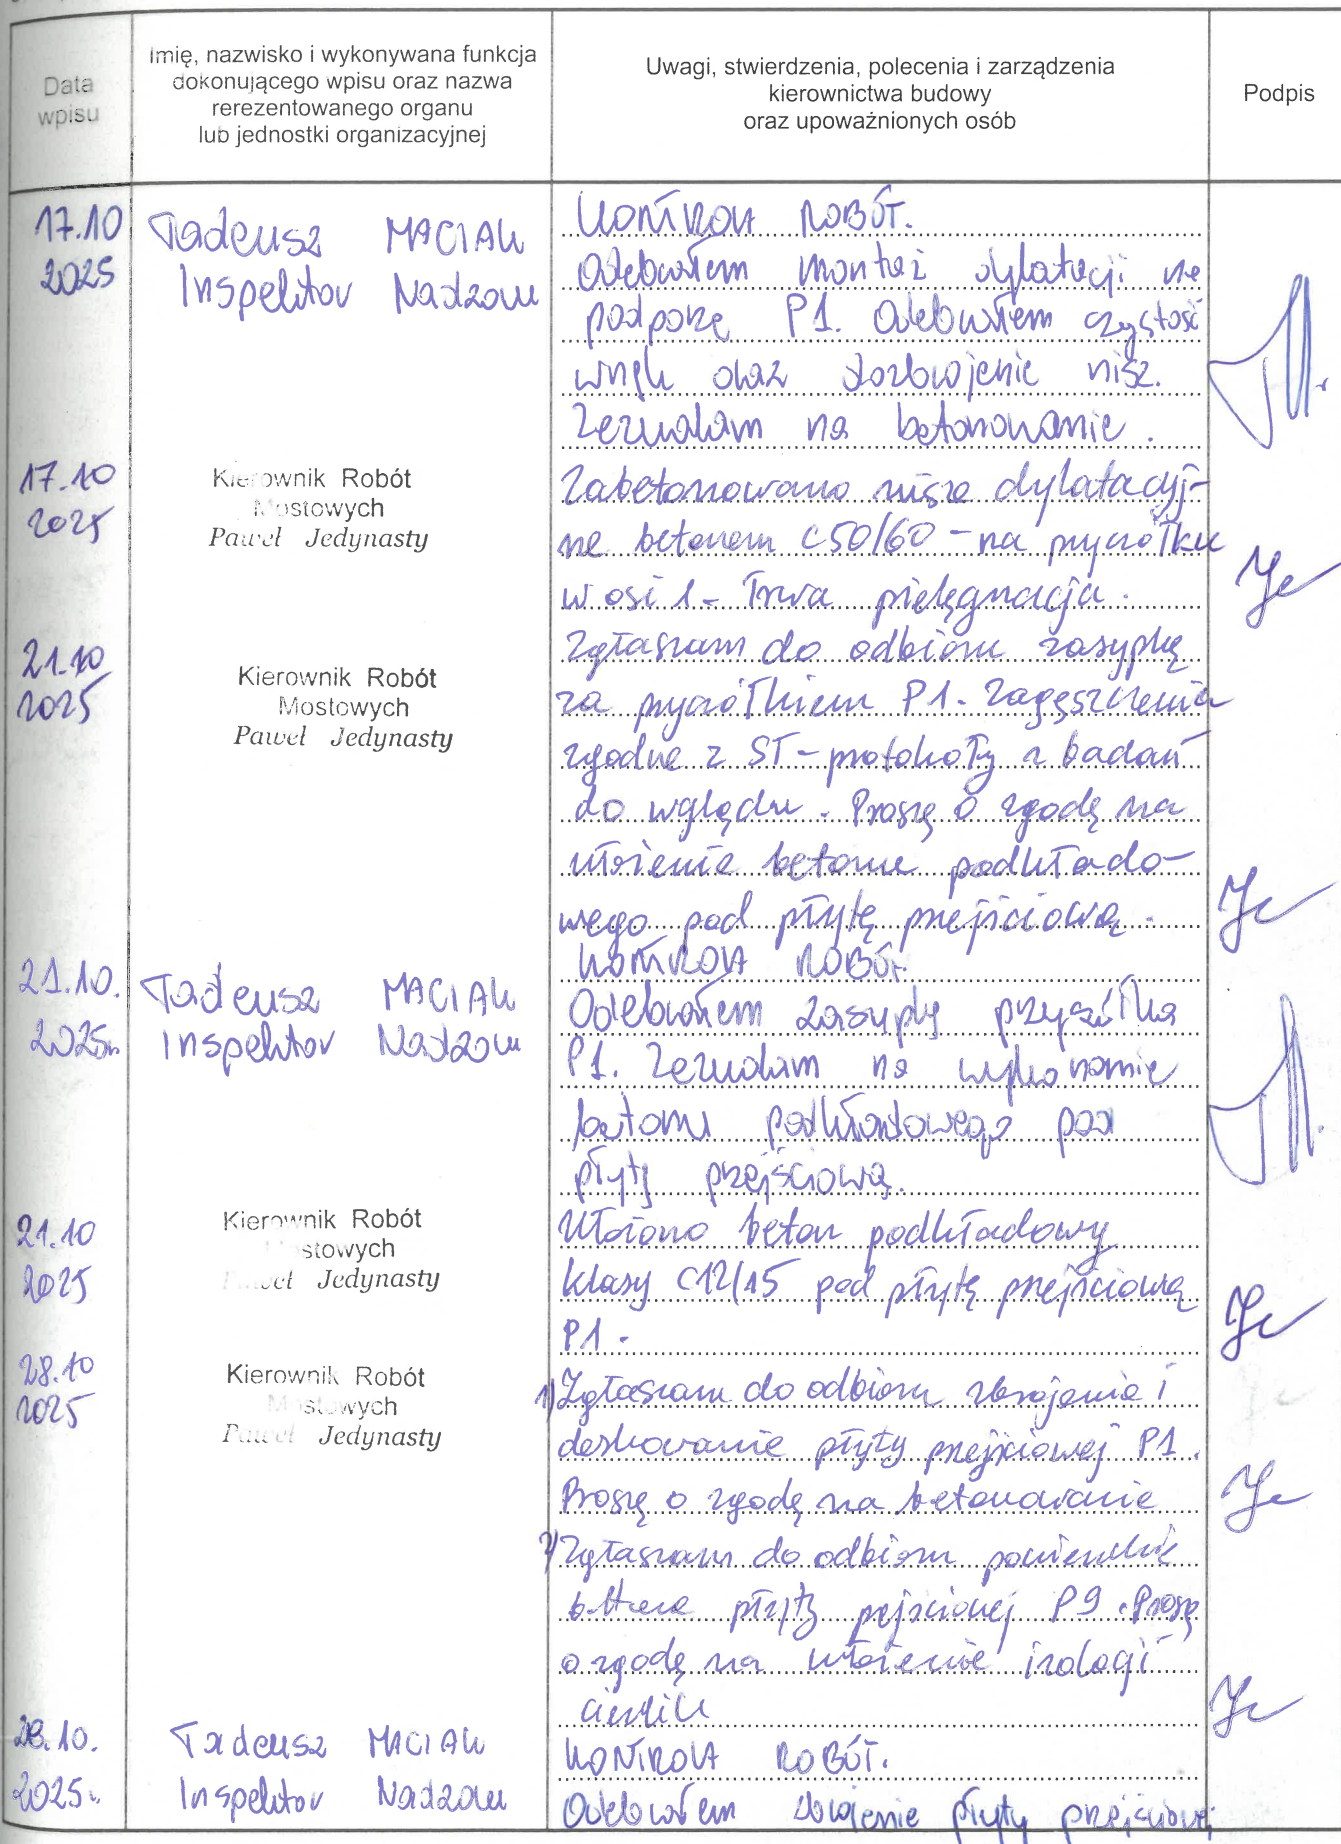 Data
wpisu
Imię, nazwisko i wykonywana funkcja
dokonującego wpisu oraz nazwa
rerezentowanego organu
lub jednostki organizacyjnej
Uwagi, stwierdzenia, polecenia i zarządzenia
kierownictwa budowy
oraz upoważnionych osób
Podpis
17.10
2025
Tadeusz MACIAK
Inspektor Nadzoru
KONTROLA ROBÓT.
Odebrałem montaż dylatacji na
podporze P1. Odebrałem czystość
wnęk oraz dozbrojenie nisz.
Zezwalam na betonowanie.
17.10
2025
Kierownik Robót
Mostowych
Paweł Jedynasty
Zabetonowano nisze dylatacyj-
ne betonem C50/60 - na przyczółku
w osi 1 - Trwa pielęgnacja.
21.10
2025
Kierownik Robót
Mostowych
Paweł Jedynasty
Zgłaszam do odbioru zasypkę
za przyczółkiem P1. Zagęszczenia
zgodne z ST - protokoły z badań
do wglądu. Proszę o zgodę na
ułożenie betonu podkłado-
wego pod płytę przejściową.
21.10.
2025r.
Tadeusz MACIAK
Inspektor Nadzoru
KONTROLA ROBÓT.
Odebrałem zasypkę przyczółka
P1. Zezwalam na wykonanie
betonu podkładowego pod
płytę przejściową.
21.10
2025
Kierownik Robót
Mostowych
Paweł Jedynasty
Ułożono beton podkładowy
klasy C12/15 pod płytę przejściową
P1.
28.10
2025
Kierownik Robót
Mostowych
Paweł Jedynasty
1) Zgłaszam do odbioru zbrojenie i
deskowanie płyty przejściowej P1.
Proszę o zgodę na betonowanie
2) Zgłaszam do odbioru powierzchnie
betonu płyty pejściowej P9. Proszę
o zgodę na ułożenie izolacji
cienkiej
28.10.
2025r.
Tadeusz MACIAK
Inspektor Nadzoru
KONTROLA ROBÓT.
Odebrałem zbrojenie płyty przejściowej